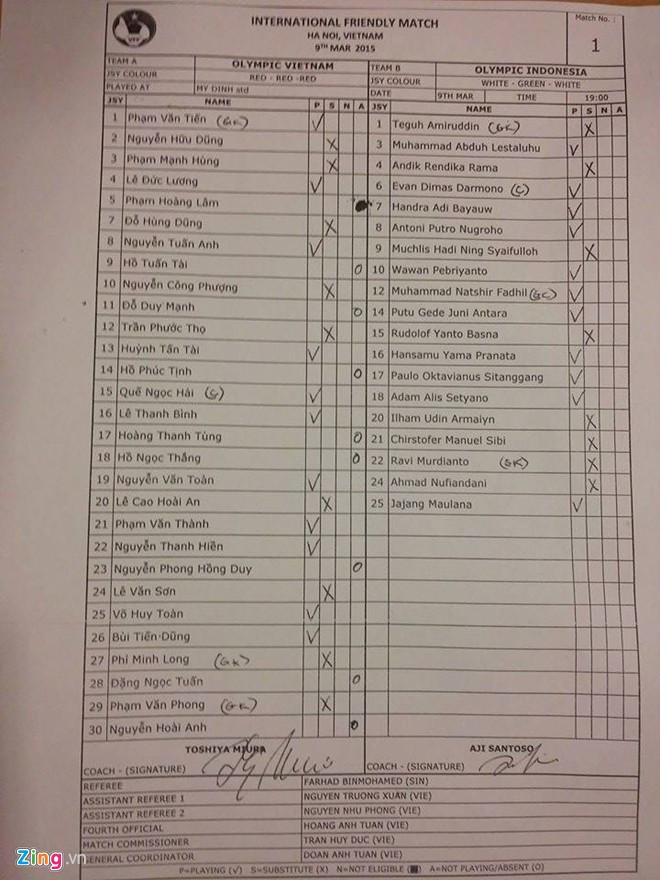 VFF
INTERNATIONAL FRIENDLY MATCH
HA NOI, VIETNAM
9TH MAR 2015
Match No. :
1
TEAM A OLYMPIC VIETNAM TEAM B OLYMPIC INDONESIA
JSY COLOUR RED - RED -RED JSY COLOUR WHITE - GREEN - WHITE
PLAYED AT MY DINH std DATE 9TH MAR TIME 19:00
JSY NAME P S N A JSY NAME P S N A
1 Phạm Văn Tiến (GK) √ 1 Teguh Amiruddin (GK) X
2 Nguyễn Hữu Dũng X 3 Muhammad Abduh Lestaluhu √
3 Phạm Mạnh Hùng X 4 Andik Rendika Rama X
4 Lê Đức Lương √ 6 Evan Dimas Darmono (C) √
5 Phạm Hoàng Lâm 7 Handra Adi Bayauw √
7 Đỗ Hùng Dũng X 8 Antoni Putro Nugroho √
8 Nguyễn Tuấn Anh √ 9 Muchlis Hadi Ning Syaifulloh X
9 Hồ Tuấn Tài O 10 Wawan Pebriyanto √
10 Nguyễn Công Phượng X 12 Muhammad Natshir Fadhil (GC) √
11 Đỗ Duy Mạnh O 14 Putu Gede Juni Antara √
12 Trần Phước Thọ X 15 Rudolof Yanto Basna X
13 Huỳnh Tấn Tài √ 16 Hansamu Yama Pranata √
14 Hồ Phúc Tịnh O 17 Paulo Oktavianus Sitanggang √
15 Quế Ngọc Hải (C) √ 18 Adam Alis Setyano √
16 Lê Thanh Bình √ 20 Ilham Udin Armaiyn X
17 Hoàng Thanh Tùng O 21 Chirstofer Manuel Sibi X
18 Hồ Ngọc Thắng O 22 Ravi Murdianto (GK) X
19 Nguyễn Văn Toàn √ 24 Ahmad Nufiandani X
20 Lê Cao Hoài An X 25 Jajang Maulana √
21 Phạm Văn Thành √
22 Nguyễn Thanh Hiền √
23 Nguyễn Phong Hồng Duy O
24 Lê Văn Sơn X
25 Võ Huy Toàn √
26 Bùi Tiến Dũng √
27 Phí Minh Long (GK) X
28 Đặng Ngọc Tuấn O
29 Phạm Văn Phong (GK) X
30 Nguyễn Hoài Anh O
TOSHIYA MIURA AJI SANTOSO
COACH - (SIGNATURE) COACH - (SIGNATURE)
REFEREE FARHAD BINMOHAMED (SIN)
ASSISTANT REFEREE 1 NGUYEN TRUONG XUAN (VIE)
ASSISTANT REFEREE 2 NGUYEN NHU PHONG (VIE)
FOURTH OFFICIAL HOANG ANH TUAN (VIE)
MATCH COMMISSIONER TRAN HUY DUC (VIE)
GENERAL COORDINATOR DOAN ANH TUAN (VIE)
P=PLAYING (√) S=SUBSTITUTE (X) N=NOT ELIGIBLE (■) A=NOT PLAYING/ABSENT (O)
Zing.vn